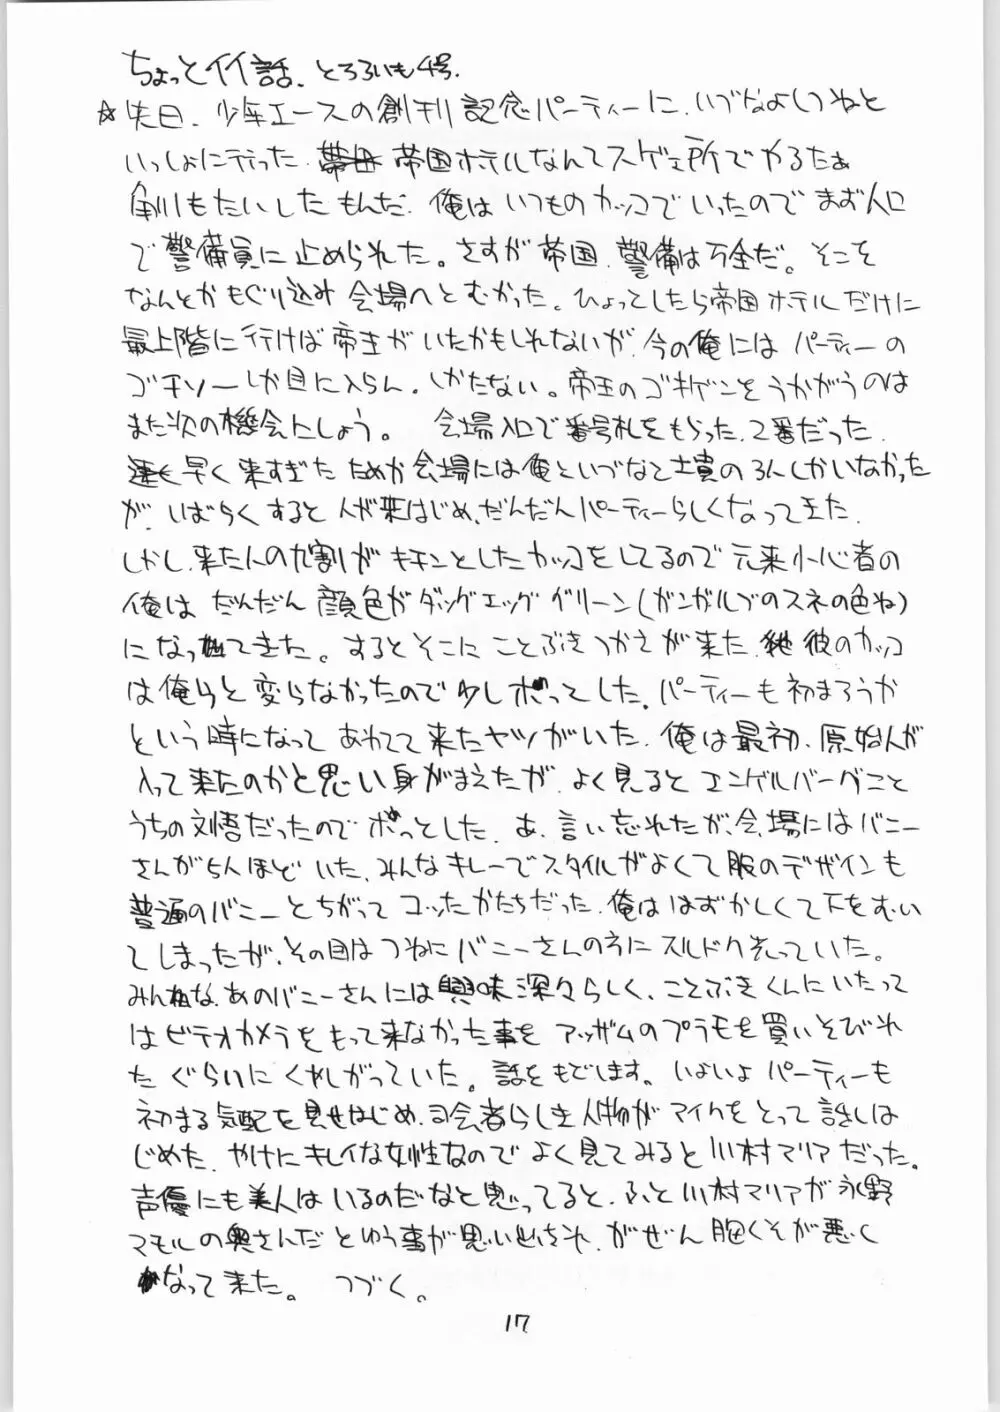 ちょっとイイ話、とろろいも4号.
☆先日、少年エースの創刊記念パーティーに、いづなよしつねと
いっしょに行った 帝国ホテルなんてスゲェ所でやるたぁ
角川もたいしたもんだ. 俺はいつものカッコでいったのでまず入口
で警備員に止められた。さすが帝国、警備は万全だ。そこを
なんとかもぐり込み会場へとむかった。ひょっとしたら帝国ホテルだけに
最上階に行けば帝王がいたかもしれないが、今の俺にはパーティーの
ゴチソーしか目に入らん。しかたない。帝王のゴキゲンをうかがうのは
また次の機会としよう。 会場入口で番号札をもらった、2番だった.
早く来すぎたためか会場には俺といづなと士貴の3人しかいなかった
が、しばらくすると人が来はじめ、だんだんパーティーらしくなってきた.
しかし、来た人の九割がキチンとしたカッコをしてるので元来小心者の
俺はだんだん顔色がダックエッググリーン(ガンガルブのスネの色ね)
になってきた。するとそこにことぶきつかさが来た、彼のカッコ
は俺らと変らなかったので少しホッってした。パーティーも初まろうか
という時になってあわてて来たヤツがいた、俺は最初、原始人が
入って来たのかと思い身がまえたが、よく見るとエンゲルバーグこと
うちの刘悟だったのでホッとした. あ、言い忘れたが、会場にはバニー
さんが5人ほどいた、みんなキレーでスタイルがよくて服のデザインも
普通のバニーとちがってコッたかたちだった、俺ははずかしくて下をむい
てしまったが、その目はつねにバニーさんの方にスルドク光っていた。
みんな、あのバニーさんには興味深々らしく、ことぶきくんにいたって
はビデオカメラをもって来なかった事をアッザムのプラモを買いそびれ
たぐらいにくやしがっていた。話をもどします。いよいよパーティーも
初まる気配を見せはじめ、司会者らしき人物がマイクをとって話しは
じめた、やけにキレイな女性なのでよく見てみると川村マリアだった。
声優にも美人はいるのだなと思ってると、ふと川村マリアが永野
マモルの奥さんだとゆう事が思い出され、がぜん胸くそが悪く
なって来た。 つづく。
17